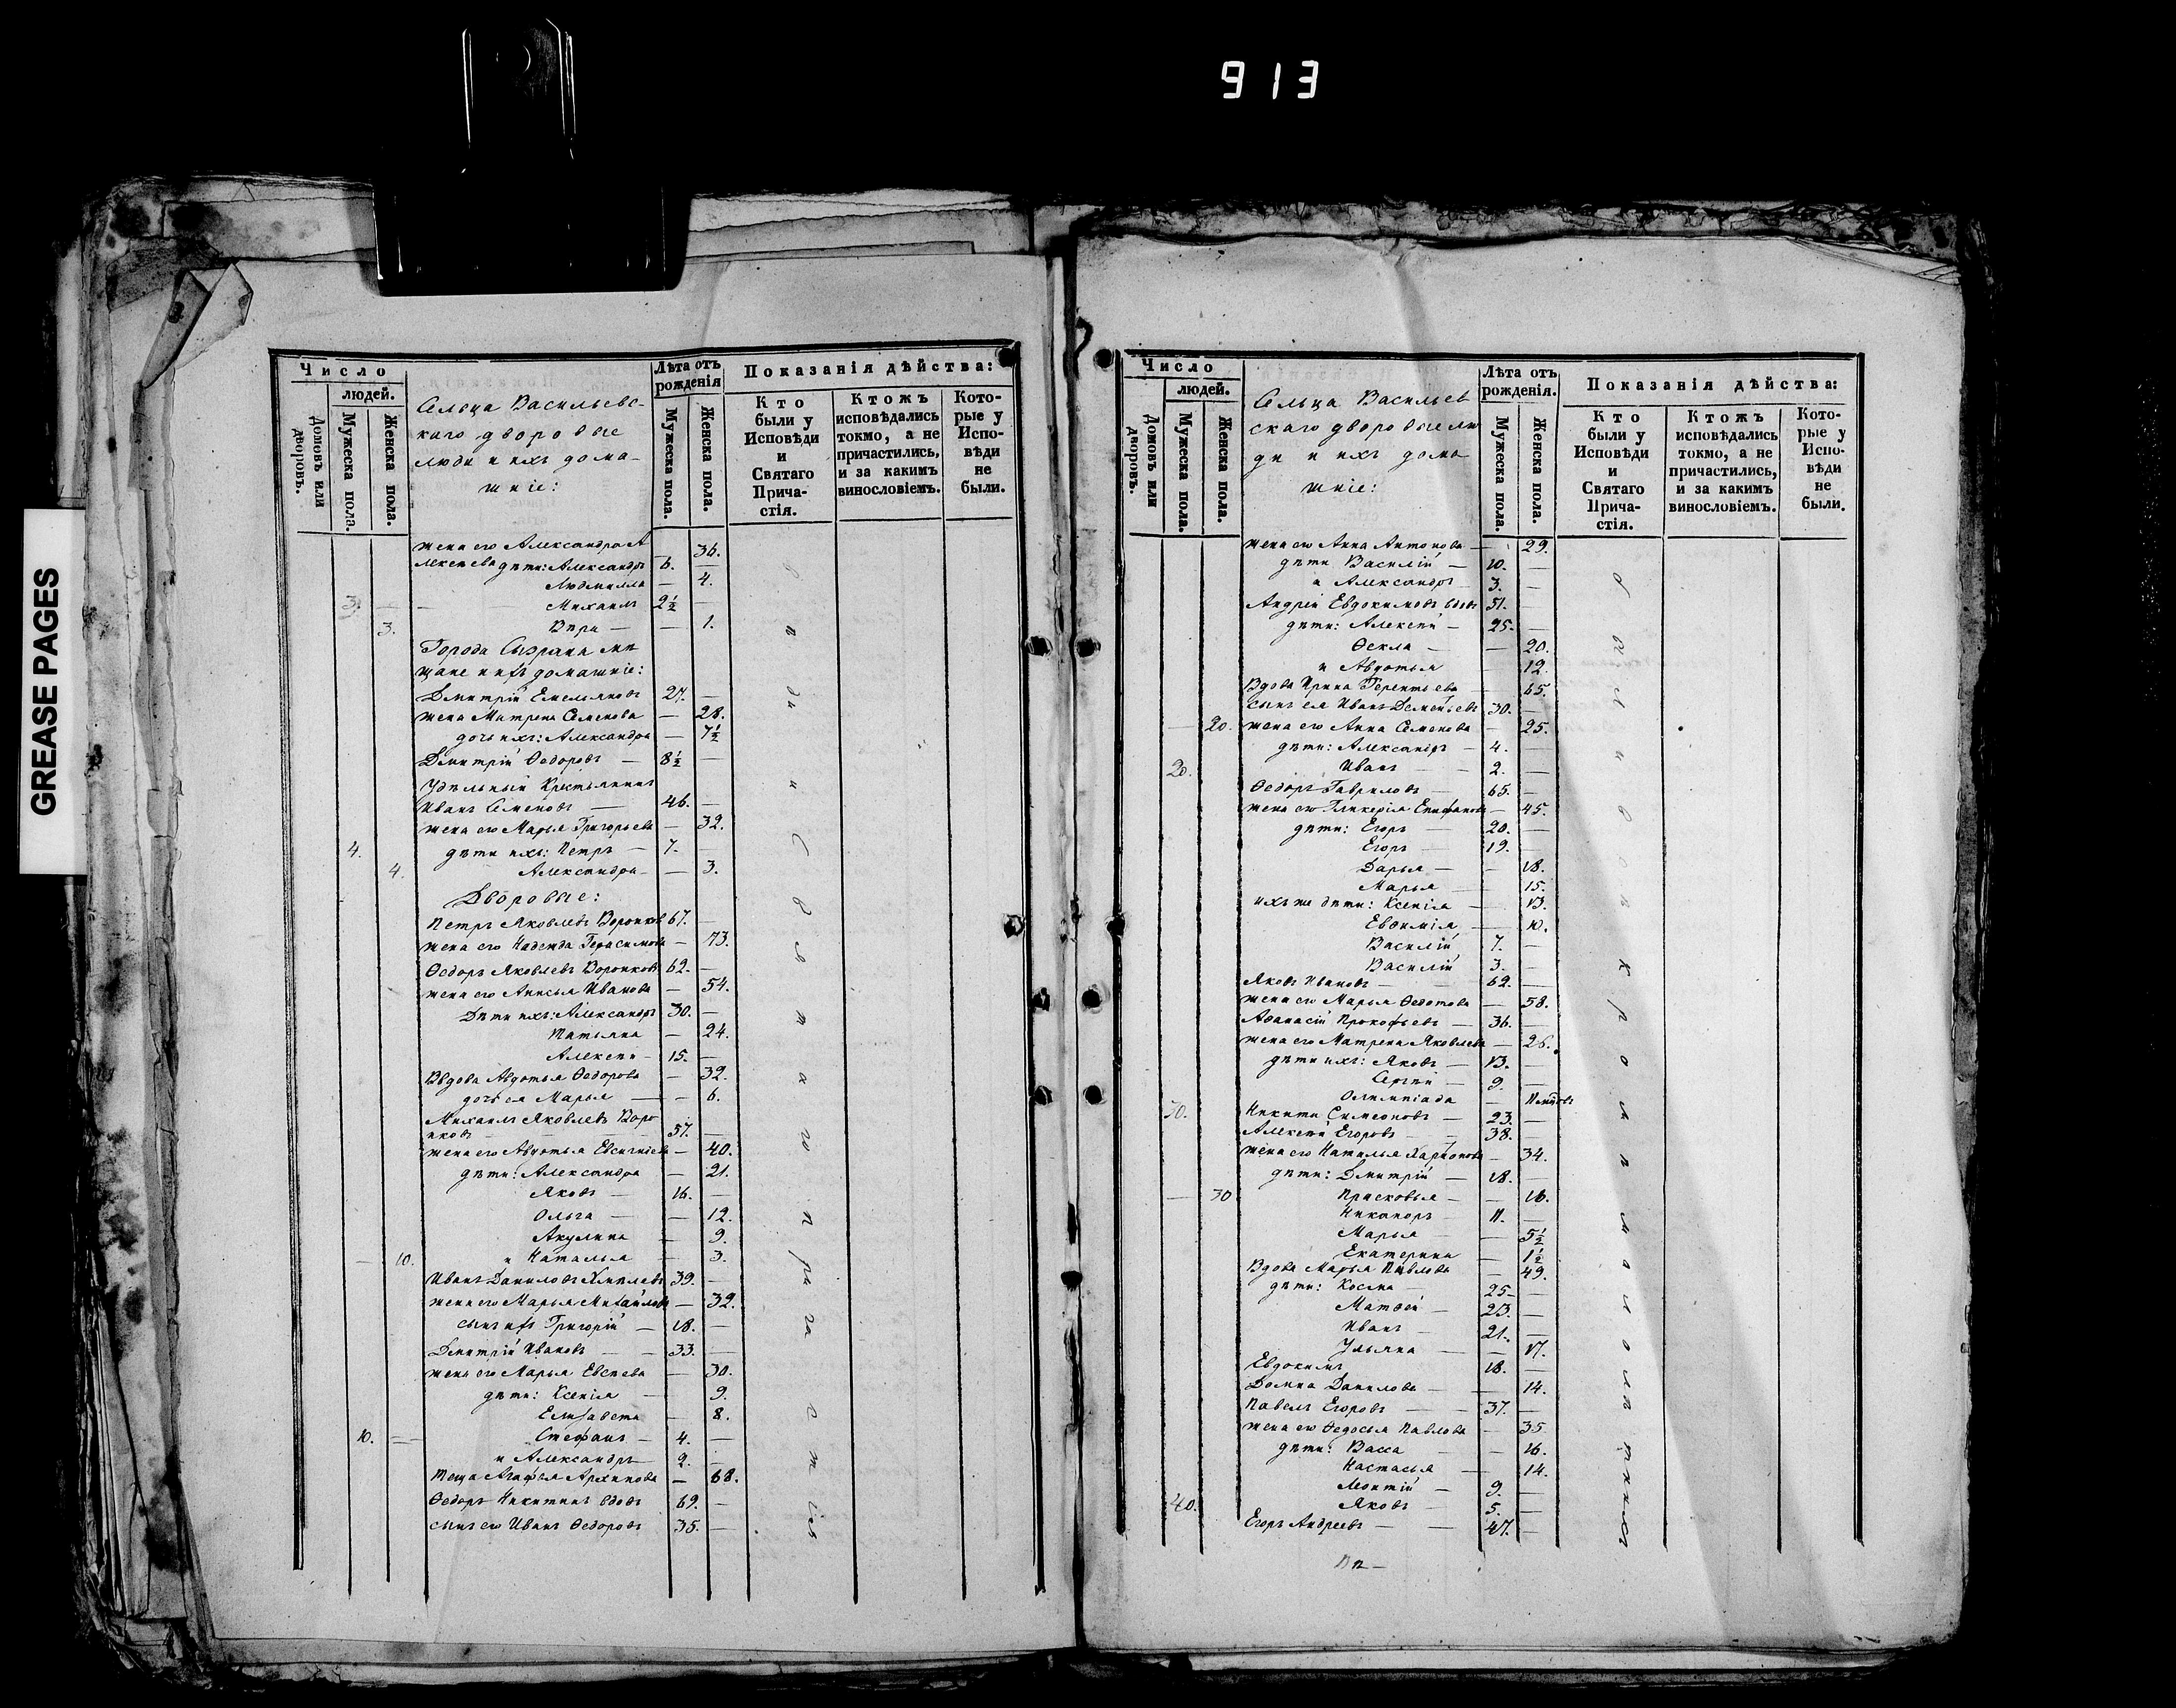 913
GREASE PAGES
Число
людей.
Домовъ или дворовъ.
Мужеска пола.
Женска пола.
Сельца Васильевс-
каго дворовые
люди и ихъ дома-
шніе:
Лѣта отъ рожденія
Мужеска пола.
Женска пола.
Показанія дѣйства:
Кто были у Исповѣди и Святаго Прича-стія.
Ктожъ исповѣдались токмо, а не причастились, и за какимъ винословіемъ.
Кото-рые у Испо-вѣди не были.
жена его Александра А 36.
лексѣева дѣти: Александръ 6. —
Людмилла — 4.
3. Михаилъ 2½ —
3. Вѣра — — 1.
Города Сызрана мѣ
щане и ихъ домашніе:
Дмитрій Емельяновъ 27. —
жена Матрена Семенова — 28.
дочь ихъ: Александра — 7½
Дмитрій Ѳедоровъ — 8½ —
Удѣльный Крестьянинъ
Иванъ Семеновъ — 46. —
жена его Марья Григорьева — 32.
4. дѣти ихъ: Петръ — 7. —
4. Александра — — 3.
Дворовые:
Петръ Яковлевъ Воронковъ 67. —
жена его Надежда Герасимова — 73.
Ѳедоръ Яковлевъ Воронковъ 62. —
жена его Анисья Иванова — 54.
Дѣти ихъ: Александръ 30. —
Татьяна — 24.
Алексѣй — 15. —
Ввдова Авдотья Ѳедорова — 32.
дочь ея Марья — — 6.
Михаилъ Яковлевъ Воро
нковъ 57. —
жена его Авдотья — 40.
дѣти: Александра — 21.
Яковъ — 16. —
Ольга — — 12.
Акулина — 9.
— 10. и Наталья — 3.
Иванъ Даниловъ 39. —
жена его Марья Михайлова — 32.
сынъ ихъ Григорій — 18. —
Дмитрій Ивановъ — 33. —
жена его Марья Евсѣева — 30.
дѣти: Ксенія — 9.
Елисавета — 8.
10. Стефанъ — 4. —
и Александръ 2. —
теща Агафья Архипова — 68.
Ѳедоръ Никитинъ вдовъ 69. —
сынъ его Иванъ Ѳедоровъ 35. —
в п da и С в я т а го п ри ча с т ія
Число
людей.
Домовъ или дворовъ.
Мужеска пола.
Женска пола.
Сельца Васильев
скаго дворовые лю
ди и ихъ дома
шніе:
Лѣта отъ рожденія.
Мужеска пола.
Женска пола.
Показанія дѣйства:
Кто были у Исповѣди и Святаго Прича-стія.
Ктожъ исповѣдались токмо, а не причастились, и за какимъ винословіемъ.
Кото-рые у Испо-вѣди не были.
жена его Анна Антонова — 29.
дѣти Василій — 10. —
и Александръ 3. —
Андрей Евдокимовъ вдовъ 51. —
дѣти: Алексѣй — 25. —
Ѳекла — — 20.
и Авдотья — 12.
Вдова Ирина Терентьева — 65.
сынъ ея Иванъ Дементьевъ 30. —
— 20. жена его Анна Семенова — 25.
дѣти: Александръ — 4. —
20. Иванъ — 2. —
Ѳедоръ Гавриловъ — 65. —
жена его Гликерія Епифанова — 45.
дѣти: Егоръ — 20. —
Егоръ — 19. —
Дарья — — 18.
Марья — 15.
ихъ же дѣти: Ксенія — — 13.
Евѳимія — 10.
Василій 7. —
Василій 3. —
Яковъ Ивановъ — 62. —
жена его Марья Ѳедотова — 58.
Аѳанасій Прокофьевъ — 36. —
жена его Матрена Яковлева — 26.
дѣти ихъ: Яковъ — 13. —
Сергѣй — 9. —
Олимпіада —
30. Никита Симеоновъ — 23. —
Алексѣй Егоровъ — 38. —
жена его Наталья Харионова — 34.
дѣти: Дмитрій — 18. —
— 30 Прасковья — — 16.
Никаноръ — 11. —
Марья — — 5½
Екатерина — 1½
Вдова Марья Павлова — 49.
дѣти: Косма — 25 —
Матвей — 23. —
Иванъ — 21. —
Ульяна — — 17.
Евдокимъ 18. —
Домна Данилова — — 14.
Павелъ Егоровъ — 37. —
жена его Ѳедосья Павлова — 35
дѣти: Васса — — 16.
Настасья — 14.
Леонтій — 9. —
40. Яковъ — 5. —
Егоръ Андреевъ — — 47. —